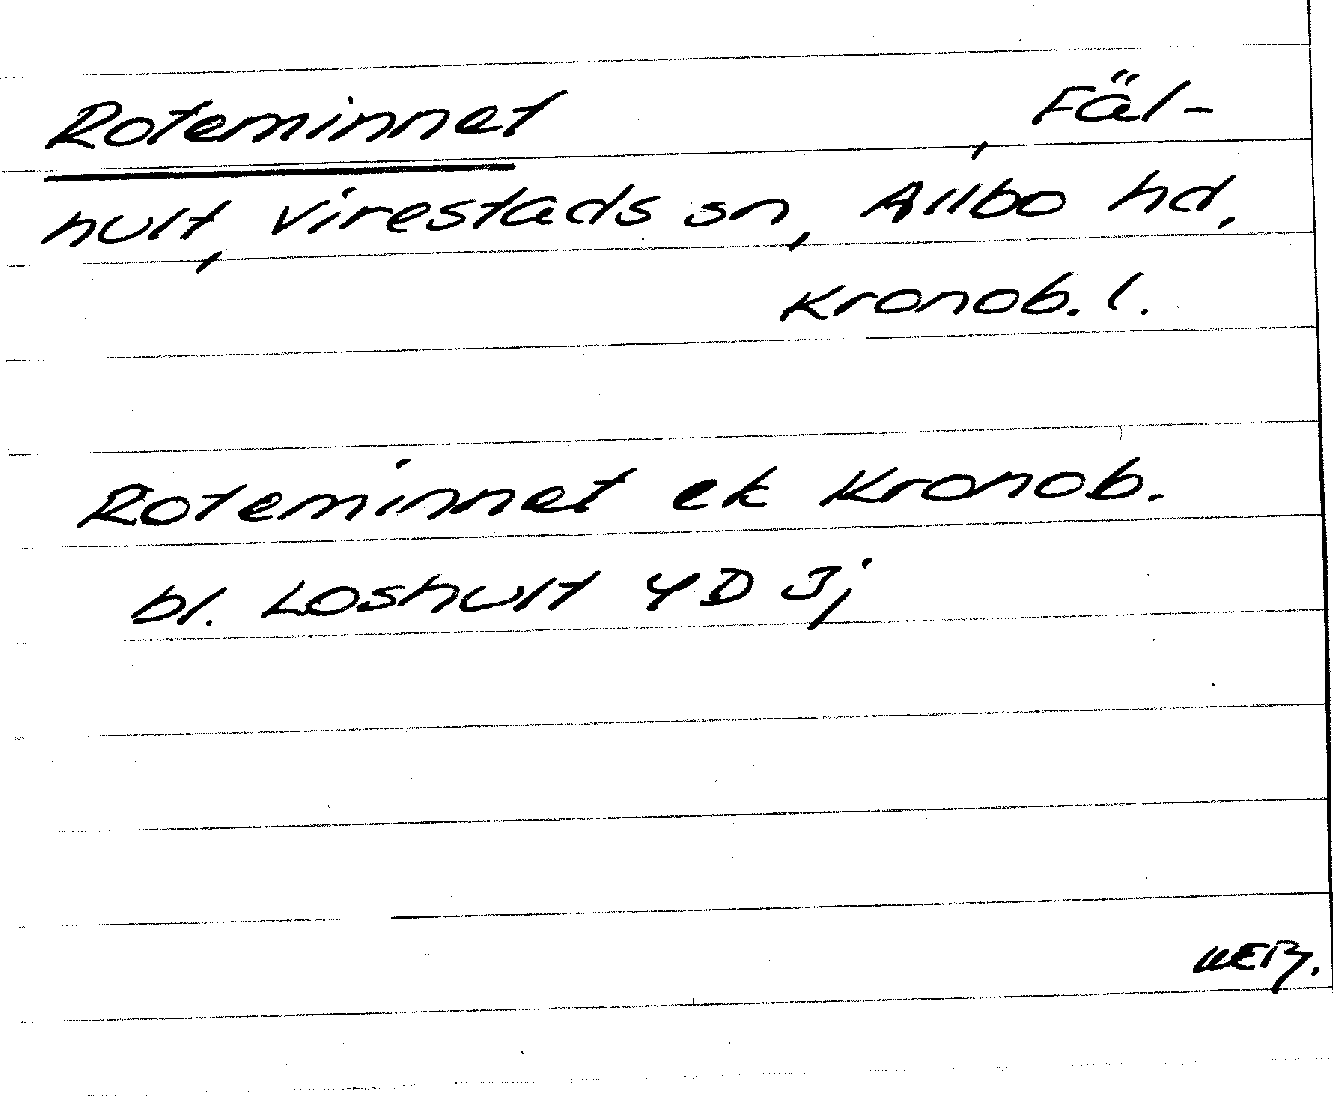 Roteminnet , Fäl-
hult, Virestads sn, Allbo hd,
Kronob. l.
Roteminnet ek Kronob.
bl. Loshult 4D Ij